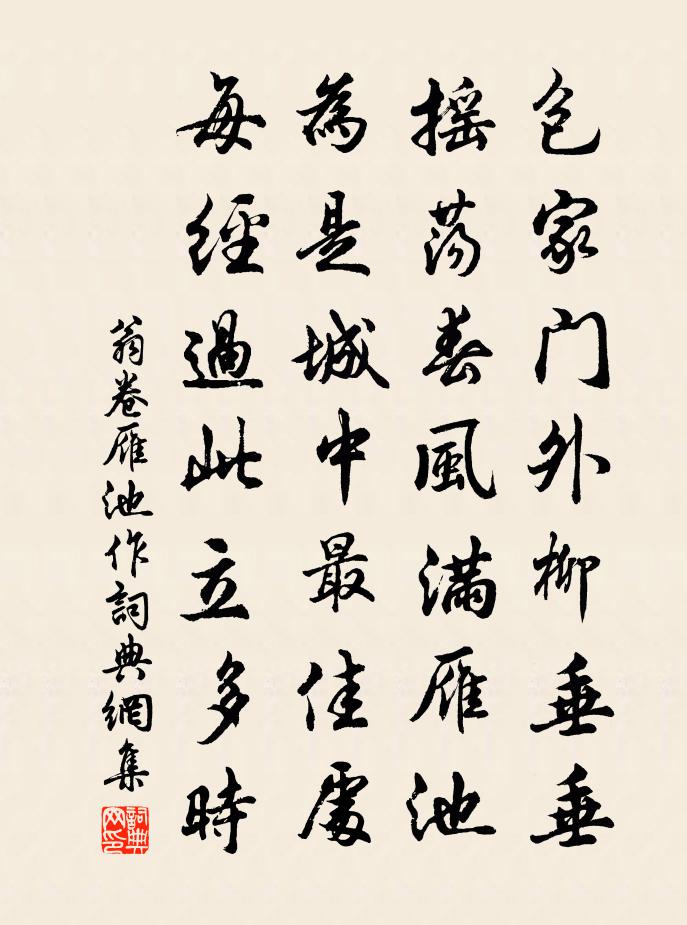 包家门外柳垂垂
摇荡春風满雁池
為是城中最佳處
每經過此立多時
翁卷雁池作詞典網集
詞典网印